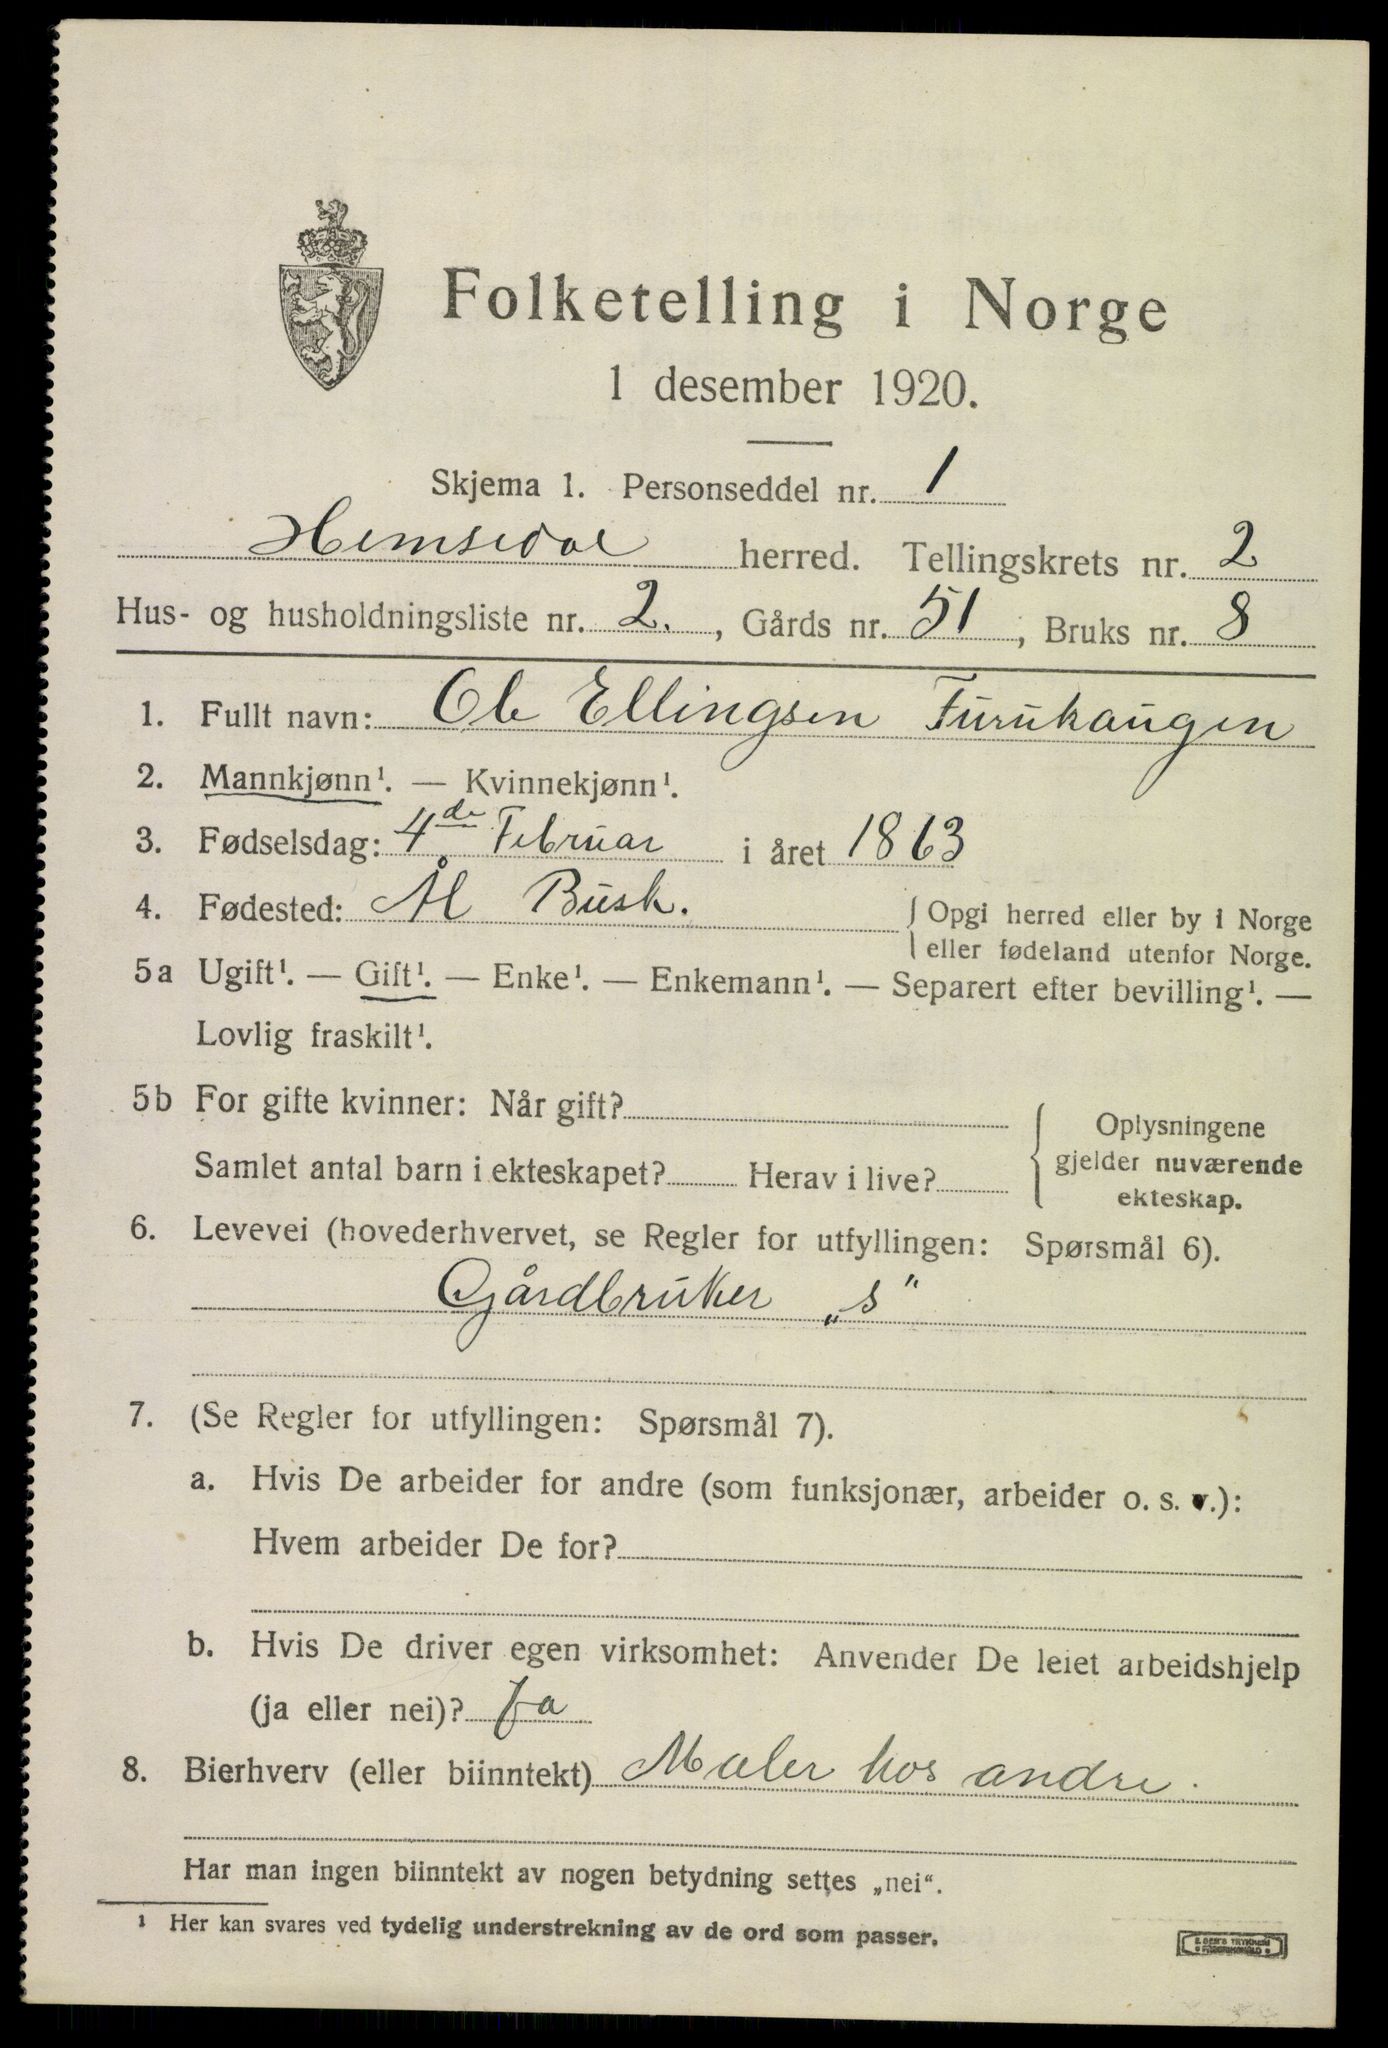 Folketelling i Norge
1 desember 1920.
Skjema 1. Personseddel nr. 1
Hemsedal herred. Tellingskrets nr. 2
Hus- og husholdningsliste nr. 2. , Gårds nr. 51 , Bruks nr. 8
1. Fullt navn: Ole Ellingsen Furuhaugen
2. Mannkjønn¹. — Kvinnekjønn¹.
3. Fødselsdag: 4de Februar i året 1863
4. Fødested: Ål Busk. { Opgi herred eller by i Norge
eller fødeland utenfor Norge.
5a Ugift¹. — Gift¹. — Enke¹. — Enkemann¹. — Separert efter bevilling¹. —
Lovlig fraskilt¹.
5b For gifte kvinner: Når gift?
Samlet antal barn i ekteskapet? Herav i live?
Oplysningene
gjelder nuværende
ekteskap.
6. Levevei (hovederhvervet, se Regler for utfyllingen: Spørsmål 6).
Gårdbruker „s“
7. (Se Regler for utfyllingen: Spørsmål 7).
a. Hvis De arbeider for andre (som funksjonær, arbeider o. s. v.):
Hvem arbeider De for?
b. Hvis De driver egen virksomhet: Anvender De leiet arbeidshjelp
(ja eller nei)? Ja
8. Bierhverv (eller biinntekt) Maler hos andre.
Har man ingen biinntekt av nogen betydning settes „nei“.
¹ Her kan svares ved tydelig understrekning av de ord som passer.